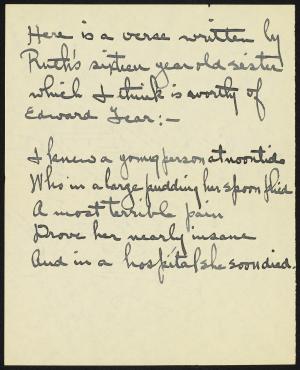 Here is a verse written by
Ruth's sixteen year old sister
which I think is worthy of
Edward Lear:—
I knew a young person at noontide
Who in a large pudding her spoon plied
A most terrible pain
Drove her nearly insane
And in a hospital she soon died.